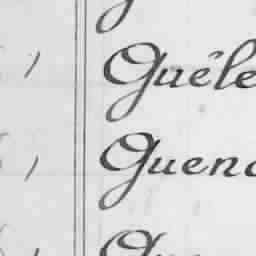 Guéle
Guen